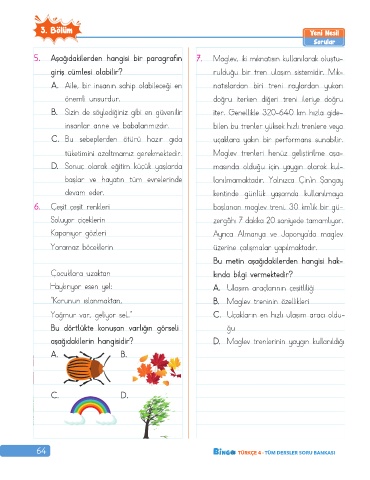 3. Bölüm
Yeni Nesil
Sorular
5. Aşağıdakilerden hangisi bir paragrafın
giriş cümlesi olabilir?
A. Aile, bir insanın sahip olabileceği en
önemli unsurdur.
B. Sizin de söylediğiniz gibi en güvenilir
insanlar anne ve babalarımızdır.
C. Bu sebeplerden ötürü hazır gıda
tüketimini azaltmamız gerekmektedir.
D. Sonuç olarak eğitim küçük yaşlarda
başlar ve hayatın tüm evrelerinde
devam eder.
6. Çeşit çeşit renkleri
Soluyor çiçeklerin
Kapanıyor gözleri
Yaramaz böceklerin
Çocuklara uzaktan
Haykırıyor esen yel:
"Korunun ıslanmaktan,
Yağmur var, geliyor sel."
Bu dörtlükte konuşan varlığın görseli
aşağıdakilerin hangisidir?
A.
B.
C.
D.
7. Maglev, iki mıknatısın kullanılarak oluştu-
rulduğu bir tren ulaşım sistemidir. Mık-
natıslardan biri treni raylardan yukarı
doğru iterken diğeri treni ileriye doğru
iter. Genellikle 320-640 km hızla gide-
bilen bu trenler yüksek hızlı trenlere veya
uçaklara yakın bir performans sunabilir.
Maglev trenleri henüz geliştirilme aşa-
masında olduğu için yaygın olarak kul-
lanılmamaktadır. Yalnızca Çin'in Şangay
kentinde günlük yaşamda kullanılmaya
başlanan maglev treni, 30 km'lik bir gü-
zergâhı 7 dakika 20 saniyede tamamlıyor.
Ayrıca Almanya ve Japonya'da maglev
üzerine çalışmalar yapılmaktadır.
Bu metin aşağıdakilerden hangisi hak-
kında bilgi vermektedir?
A. Ulaşım araçlarının çeşitliliği
B. Maglev treninin özellikleri
C. Uçakların en hızlı ulaşım aracı oldu-
ğu
D. Maglev trenlerinin yaygın kullanıldığı
64
BİNGO TÜRKÇE 4 - TÜM DERSLER SORU BANKASI